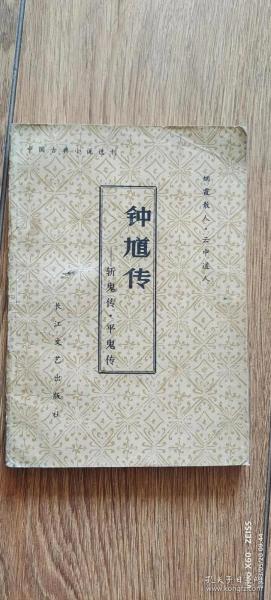 中国古典小说选刊
烟霞散人·云中道人
钟馗传
——斩鬼传·平鬼传
长江文艺出版社
vivo X60 ZEISS
孔夫子旧书网